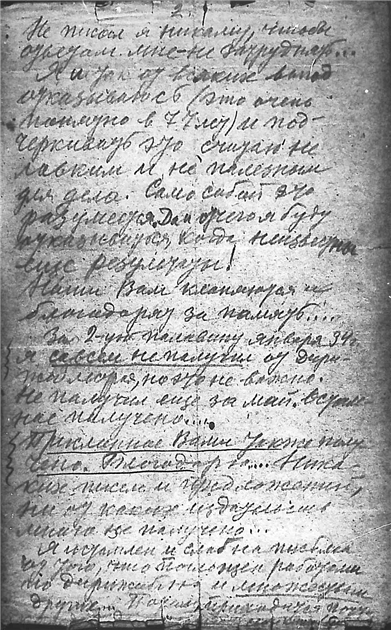 2.
Не писал я никому, чтобы
отъездам мне не затруднять...
Я и так от всяких
отказываюсь (это очень
понятно в 77 лет) и под-
черкивать это считаю не
ловким и не полезным
для дела. Само собой это
разумеется. Да и отчего я буду
отказываться, когда неизвестны
еще результаты!
Наши Вам кланяются и
благодарят за память...
За 2-ую половину января 34 г.
я совсем не получил от Дири-
жаблестроя, но это не важно.
Не получил еще за май. Осталь-
ное получено...
Присланное Вами также полу-
чено. Благодарю... Ника-
ких писем и предложений,
ни от каких издательств
мною не получено...
Я утомлен и слаб на письма
от того, что поглощен работами
по дирижаблю и множеством
других...